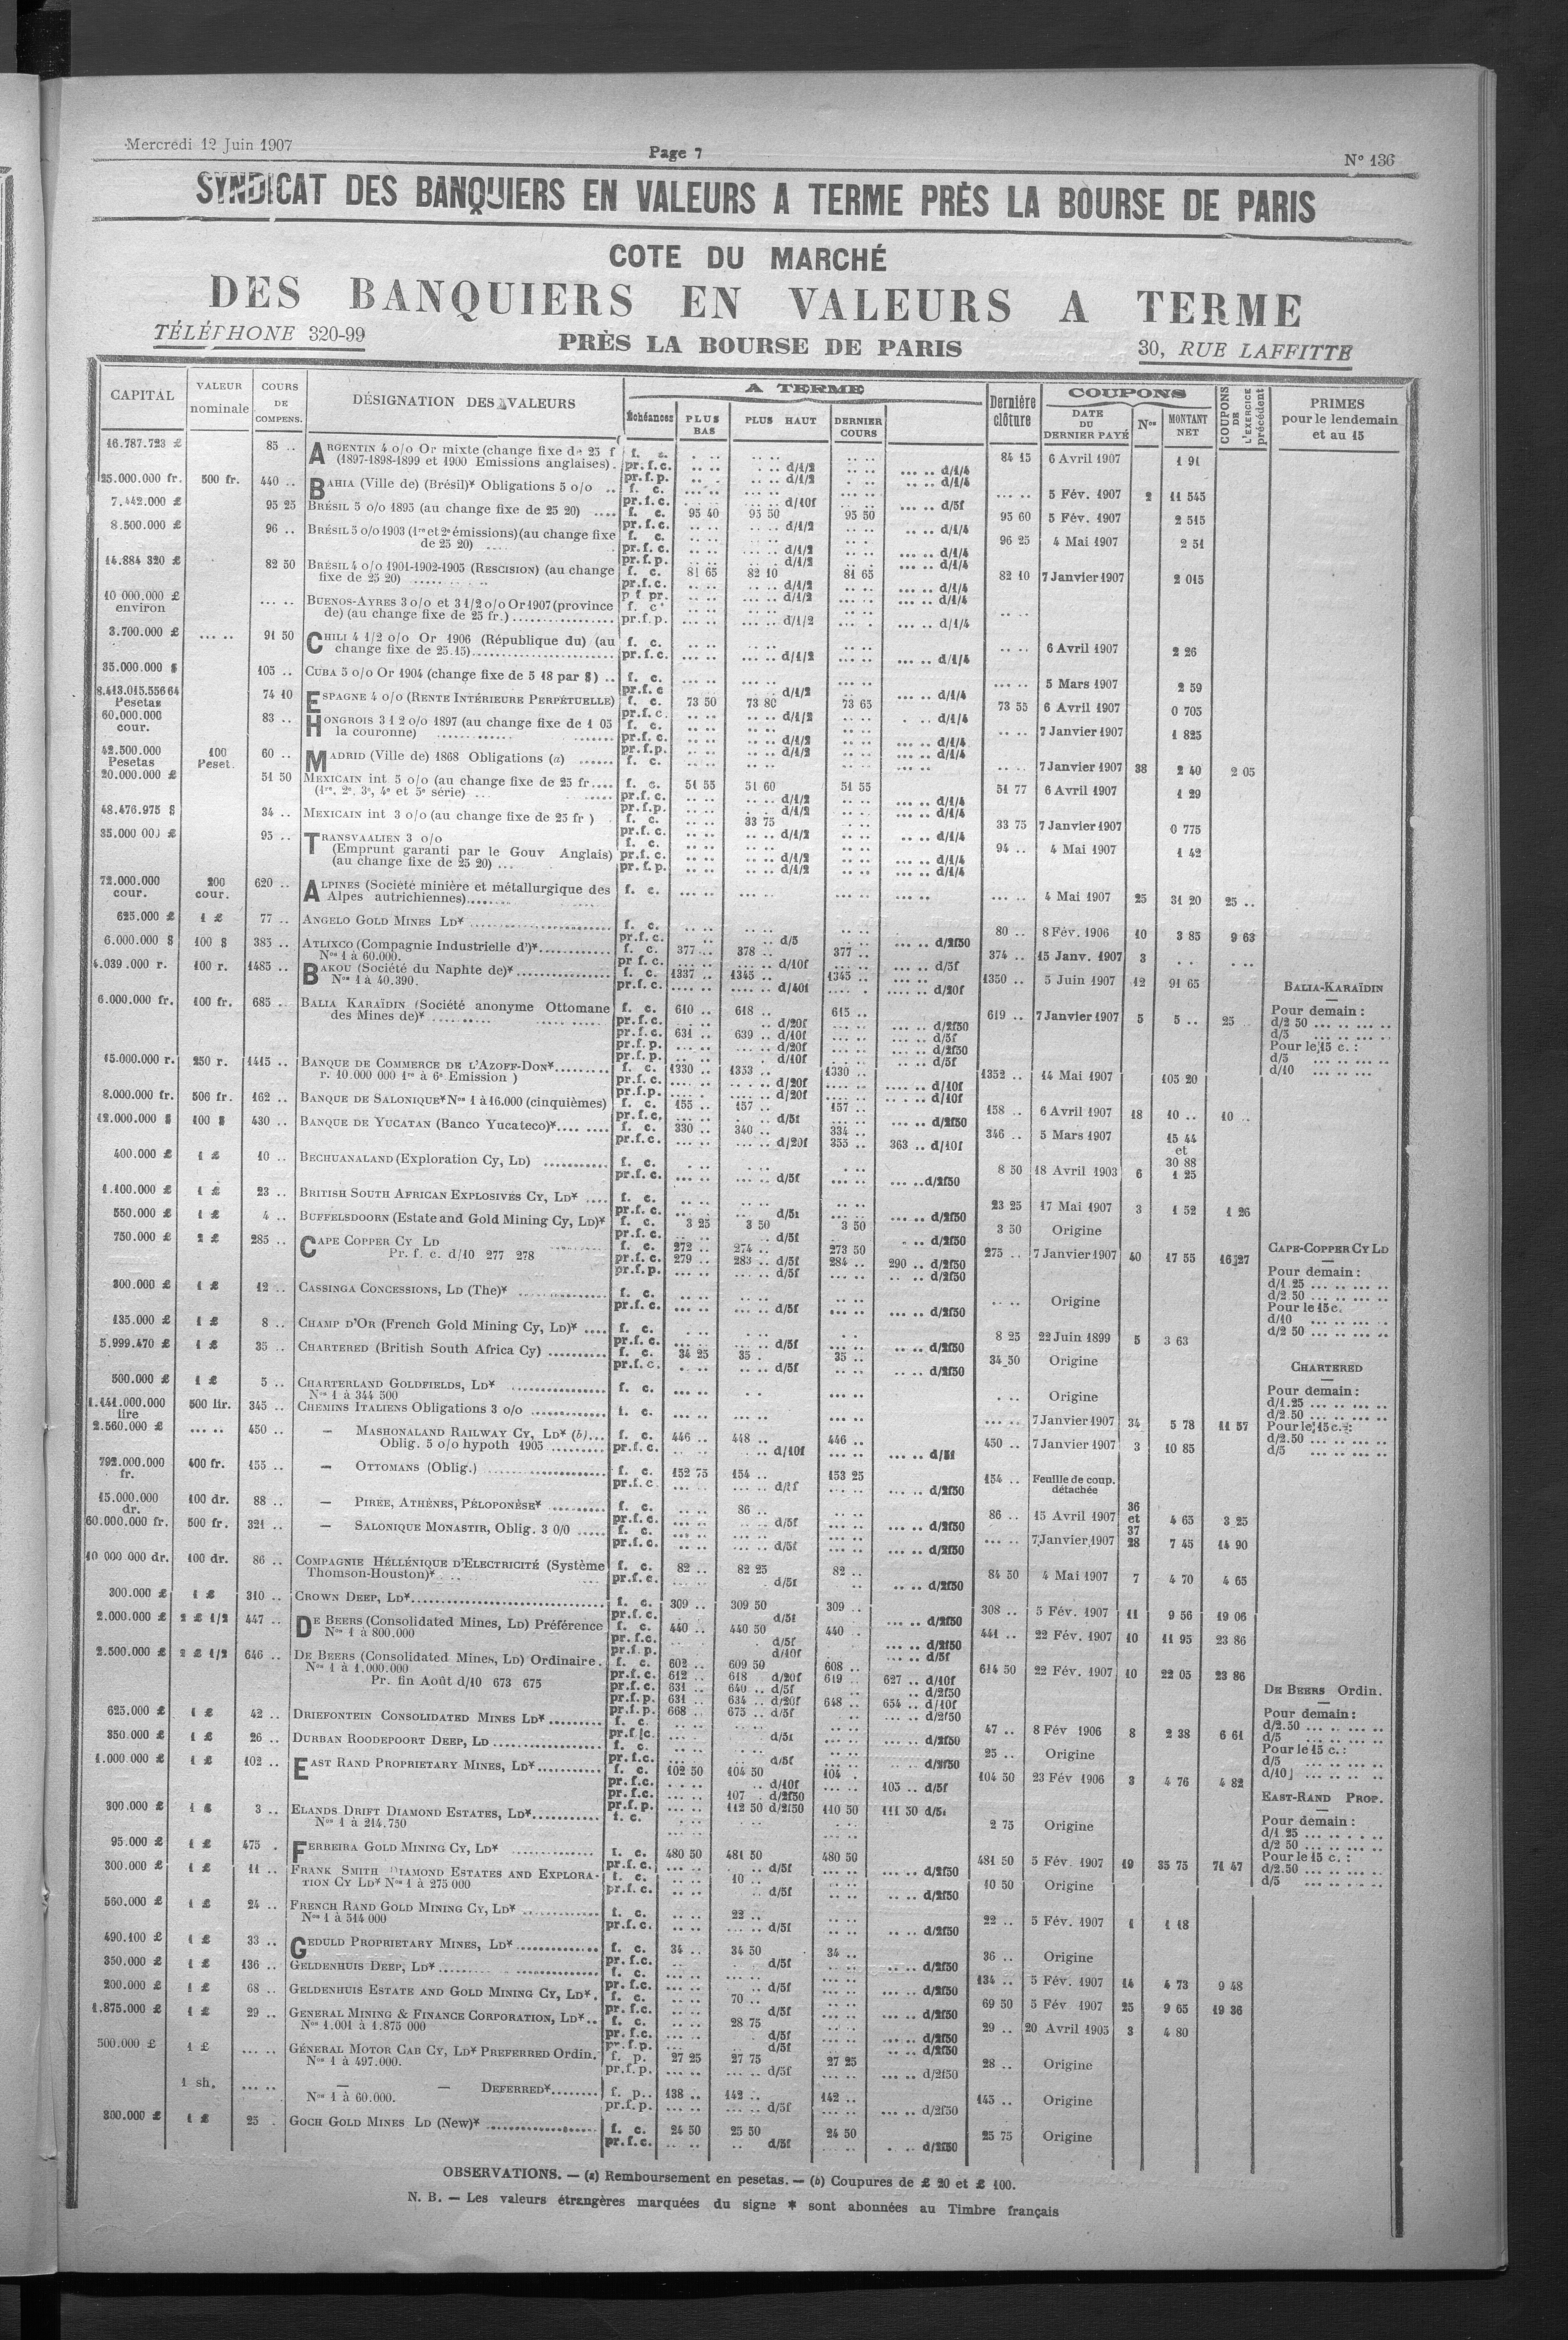 Mercredi 12 Juin 1907
Page 7
N° 136
SYNDICAT DES BANQUIERS EN VALEURS A TERME PRÈS LA BOURSE DE PARIS
COTE DU MARCHÉ
DES BANQUIERS EN VALEURS A TERME
TÉLÉPHONE 320-99
PRÈS LA BOURSE DE PARIS
30, RUE LAFFITTE
CAPITAL
VALEUR nominale
COURS DE COMPENS.
DÉSIGNATION DES VALEURS
A TERME
Échéances
PLUS BAS
PLUS HAUT
DERNIER COURS
Dernière clôture
COUPONS
DATE DU DERNIER PAYÉ
Nos
MONTANT NET
COUPONS DE L'EXERCICE précédent
PRIMES pour le lendemain et au 15
16.787.723 £ 85 .. ARGENTIN 4 o/o Or mixte (change fixe de 25 f f. c. 84 15 6 Avril 1907 1 91
(1897-1898-1899 et 1900 Emissions anglaises). pr.f.c. d/1/2 d/1/4
pr.f.p. d/1/2 d/1/4
25.000.000 fr. 500 fr. 440 .. BAHIA (Ville de) (Brésil)* Obligations 5 o/o .. f. c. 5 Fév. 1907 2 11 545
pr.f.c. d/10f d/5f
7.442.000 £ 95 25 BRÉSIL 5 o/o 1895 (au change fixe de 25 20) .... f. c. 95 40 95 50 95 50 95 60 5 Fév. 1907 2 515
pr.f.c. d/1/2 d/1/4
8.500.000 £ 96 .. BRÉSIL 5 o/o 1903 (1re et 2e émissions) (au change fixe f. c. 96 25 4 Mai 1907 2 51
de 25 20) .... pr.f.c. d/1/2 d/1/4
pr.f.p. d/1/2 d/1/4
14.884 320 £ 82 50 BRÉSIL 4 o/o 1901-1902-1905 (RESCISION) (au change f. c. 81 65 82 10 81 65 82 10 7 Janvier 1907 2 015
fixe de 25 20) ........ pr.f.c. d/1/2 d/1/4
p f pr. d/1/2 d/1/4
10 000.000 £ environ ... .. BUENOS-AYRES 3 o/o et 3 1/2 o/o Or 1907 (province f. c.
de) (au change fixe de 25 fr.) ........ pr.f.p. d/1/2 d/1/4
3.700.000 £ ... .. 91 50 CHILI 4 1/2 o/o Or 1906 (République du) (au f. c. 6 Avril 1907 2 26
change fixe de 25.15)........ pr.f.c. d/1/2 d/1/4
35.000.000 $ 105 .. CUBA 5 o/o Or 1904 (change fixe de 5 18 par $) .. f. c. 5 Mars 1907 2 59
pr.f.c d/1/2 d/1/4
8.413.015.556 64 Pesetas 74 10 ESPAGNE 4 o/o (RENTE INTÉRIEURE PERPÉTUELLE) f. c. 73 50 73 80 73 65 73 55 6 Avril 1907 0 705
pr.f.c. d/1/2 d/1/4
60.000.000 cour. 83 .. HONGROIS 3 1 2 o/o 1897 (au change fixe de 1 05 f. c. 7 Janvier 1907 1 825
la couronne) ........ pr.f.c. d/1/2 d/1/4
pr.f.p. d/1/2 d/1/4
42.500.000 Pesetas 100 Peset. 60 .. MADRID (Ville de) 1868 Obligations (a) ...... f. c. 7 Janvier 1907 38 2 40 2 05
20.000.000 £ 51 50 MEXICAIN int 5 o/o (au change fixe de 25 fr.... f. c. 51 55 51 60 51 55 51 77 6 Avril 1907 1 29
(1re, 2e, 3e, 4e et 5e série) ... pr.f.c. d/1/2 d/1/4
pr.f.p. d/1/2 d/1/4
48.476.975 $ 34 .. MEXICAIN int 3 o/o (au change fixe de 25 fr ) f. c. 33 75 33 75 7 Janvier 1907 0 775
pr.f.c. d/1/2 d/1/4
35.000 000 £ 95 .. TRANSVAALIEN 3 o/o f. c. 94 .. 4 Mai 1907 1 42
(Emprunt garanti par le Gouv Anglais) pr.f.c. d/1/2 d/1/4
(au change fixe de 25 20) ... pr.f.p. d/1/2 d/1/4
72.000.000 cour. 200 cour. 620 .. ALPINES (Société minière et métallurgique des f. c. 4 Mai 1907 25 31 20 25 ..
Alpes autrichiennes)........
625.000 £ 1 £ 77 .. ANGELO GOLD MINES LD* ........ f. c. 80 .. 8 Fév. 1906 10 3 85 9 63
pr.f.c. d/5 d/2f50
6.000.000 $ 100 $ 385 .. ATLIXCO (Compagnie Industrielle d')*........ f. c. 377 .. 378 .. 377 .. 374 .. 15 Janv. 1907 3
Nos 1 à 60.000. pr f.c. d/10f d/5f
4.039 .000 r. 100 r. 1485 .. BAKOU (Société du Naphte de)* ........ f. c. 1337 .. 1345 .. 1345 .. 1350 .. 5 Juin 1907 12 91 65
Nos 1 à 40.390. pr.f.c. d/40f d/20f
6.000.000 fr. 100 fr. 685 .. BALIA KARAÏDIN (Société anonyme Ottomane f. c. 610 .. 618 .. 615 .. 619 .. 7 Janvier 1907 5 5 .. 25
des Mines de)* ........ pr.f.c. d/20f d/2f50
pr.f.c. 631 .. 639 .. d/10f d/5f
pr.f.p. d/20f d/2f50
pr.f.p. d/10f d/5f
BALIA-KARAÏDIN
Pour demain :
d/2 50
d/5
Pour le 15 c. :
d/5
d/10
15.000.000 r. 250 r. 1415 .. BANQUE DE COMMERCE DE L'AZOFF-DON*........ f. c. 1330 .. 1353 .. 1330 .. 1352 .. 14 Mai 1907 105 20
r. 10.000 000 1re à 6e Emission ) pr.f.c. d/20f d/10f
pr.f.p. d/20f d/10f
8.000.000 fr. 506 fr. 162 .. BANQUE DE SALONIQUE* Nos 1 à 16.000 (cinquièmes) f. c. 155 .. 157 .. 157 .. 158 .. 6 Avril 1907 18 10 .. 10 ..
pr.f.c. d/5f d/2f50
12.000.000 $ 100 $ 430 .. BANQUE DE YUCATAN (Banco Yucateco)*.... .... f. c. 330 .. 340 .. 334 .. 346 .. 5 Mars 1907 15 44 et 30 88
pr.f.c. d/20f 355 .. 363 .. d/10f
400.000 £ 1 £ 10 .. BECHUANALAND (Exploration Cy, LD) ........ f. c. 8 50 18 Avril 1903 6 1 25
pr.f.c. d/5f d/2f50
1.100.000 £ 1 £ 23 .. BRITISH SOUTH AFRICAN EXPLOSIVES CY, LD* .... f. c. 23 25 17 Mai 1907 3 1 52 1 26
pr.f.c. d/5f d/2f50
550.000 £ 1 £ 4 .. BUFFELSDOORN (Estate and Gold Mining Cy, LD)* f. c. 3 25 3 50 3 50 3 50 Origine
pr.f.c. d/5f d/2f50
750.000 £ 2 £ 285 .. CAPE COPPER CY LD f. c. 272 .. 274 .. 273 50 275 .. 7 Janvier 1907 40 17 55 16 27
Pr. f. c. d/10 277 278 pr.f.c. 279 .. 283 .. d/5f 284 .. 290 .. d/2f50
pr.f.p. d/5f d/2f50
CAPE-COPPER CY LD
Pour demain :
d/1.25
d/2.50
Pour le 15 c.
d/10
d/2 50
300.000 £ 1 £ 12 .. CASSINGA CONCESSIONS, LD (The)* ........ f. c. Origine
pr.f.c. d/5f d/2f50
135.000 £ 1 £ 8 .. CHAMP D'OR (French Gold Mining Cy, LD)* .... f. c. 8 25 22 Juin 1899 5 3 63
pr.f.c. d/5f d/2f50
5.999.470 £ 1 £ 35 .. CHARTERED (British South Africa Cy) ........ f. c. 34 25 35 . 35 .. 34 50 Origine
pr.f.c. d/5f d/2f50
CHARTERED
Pour demain :
d/1.25
d/2.50
Pour le 15 c. :
d/2.50
d/5
500.000 £ 1 £ 5 .. CHARTERLAND GOLDFIELDS, LD* ........ f. c. Origine
Nos 1 à 344 500
1.441.000.000 lire 500 lir. 345 .. CHEMINS ITALIENS Obligations 3 o/o ........ f. c. 7 Janvier 1907 34 5 78 11 57
2.560.000 £ ... .. 450 .. — MASHONALAND RAILWAY CY, LD* (b)... f. c. 446 .. 448 .. 446 .. 450 .. 7 Janvier 1907 3 10 85
Oblig. 5 o/o hypoth 1905 ........ pr.f.c. d/10f d/5f
792.000.000 fr. 400 fr. 155 .. — OTTOMANS (Oblig.) ........ f. c. 152 75 154 .. 153 25 154 .. Feuille de coup. détachée
pr.f.c d/2f50
15.000.000 dr. 100 dr. 88 .. — PIRÉE, ATHÈNES, PÉLOPONÈSE* ........ f. c. 86 .. 86 .. 15 Avril 1907 36 et 37 4 65 3 25
pr.f.c. d/5f d/2f50
60.000.000 fr. 500 fr. 321 .. — SALONIQUE MONASTIR, Oblig. 3 0/0 ..... f. c. 7 Janvier 1907 28 7 45 14 90
pr.f.c. d/5f d/2f50
10 000 000 dr. 100 dr. 86 .. COMPAGNIE HÉLLÉNIQUE D'ELECTRICITÉ (Système f. c. 82 .. 82 25 82 .. 84 50 4 Mai 1907 7 4 70 4 65
Thomson-Houston)* pr.f.c. d/5f d/2f50
300.000 £ 1 £ 310 .. CROWN DEEP, LD*........ f. c. 309 .. 309 50 309 .. 308 .. 5 Fév. 1907 11 9 56 19 06
pr.f.c. d/5f d/2f50
2.000.000 £ 2 £ 1/2 447 .. DE BEERS (Consolidated Mines, LD) Préférence f. c. 440 .. 440 50 440 . 441 .. 22 Fév. 1907 10 11 95 23 86
Nos 1 à 800.000 pr.f.c. d/5f d/2f50
pr.f.p. d/10f d/5f
2.500.000 £ 2 £ 1/2 646 .. DE BEERS (Consolidated Mines, LD) Ordinaire. f. c. 602 .. 609 50 608 .. 614 50 22 Fév. 1907 10 22 05 23 86
Nos 1 à 1.000.000 pr.f.c. 612 .. 618 .. d/20f 619 .. 627 .. d/10f
Pr. fin Août d/10 673 675 pr.f.c. 631 .. 640 .. d/5f d/2f50
pr.f.p. 631 .. 634 .. d/20f 648 .. 654 .. d/10f
pr.f.p. 668 .. 675 .. d/5f d/2f50
DE BEERS Ordin.
Pour demain :
d/2.50
d/5
Pour le 15 c. :
d/5
d/10
625.000 £ 1 £ 42 .. DRIEFONTEIN CONSOLIDATED MINES LD* ........ f. c. 47 .. 8 Fév 1906 8 2 38 6 61
pr.f.c. d/5f d/2f50
350.000 £ 1 £ 26 .. DURBAN ROODEPOORT DEEP, LD ........ f. c. 25 .. Origine
pr.f.c. d/5f d/2f50
1.000 000 £ 1 £ 102 .. EAST RAND PROPRIETARY MINES, LD*........ f. c. 102 50 104 50 104 . 104 50 23 Fév 1906 3 4 76 4 82
pr.f.c. d/10f 105 .. d/5f
pr.f.c. 107 . d/2f50
pr.f.p. 112 50 d/2f50 110 50 111 50 d/5f
EAST-RAND PROP.
Pour demain :
d/1 25
d/2 50
Pour le 15 c. :
d/2.50
d/5
300.000 £ 1 £ 3 .. ELANDS DRIFT DIAMOND ESTATES, LD*........ f. c. 2 75 Origine
Nos 1 à 214.750
95.000 £ 1 £ 475 . FERREIRA GOLD MINING CY, LD* ........ f. c. 480 50 481 50 480 50 481 50 5 Fév. 1907 19 35 75 71 47
pr.f.c. d/5f d/2f50
300.000 £ 1 £ 11 .. FRANK SMITH DIAMOND ESTATES AND EXPLORA- f. c. 10 .. 10 50 Origine
TION CY LD* Nos 1 à 275 000 pr.f.c. d/5f d/2f50
560.000 £ 1 £ 24 .. FRENCH RAND GOLD MINING CY, LD* ........ f. c. 22 .. 22 .. 5 Fév. 1907 1 1 18
Nos 1 à 514 000 pr.f.c. d/5f d/2f50
490.100 £ 1 £ 33 .. GEDULD PROPRIETARY MINES, LD*........ f. c. 34 .. 34 50 34 .. 36 .. Origine
pr.f.c. d/5f d/2f50
350.000 £ 1 £ 136 .. GELDENHUIS DEEP, LD*........ f. c. 134 .. 5 Fév. 1907 14 4 73 9 48
pr.f.c. d/5f d/2f50
200.000 £ 1 £ 68 .. GELDENHUIS ESTATE AND GOLD MINING CY, LD*. f. c. 70 .. 69 50 5 Fév 1907 25 9 65 19 36
pr.f.c. d/5f d/2f50
1.875.000 £ 1 £ 29 .. GENERAL MINING & FINANCE CORPORATION, LD*.. f. c. 28 75 29 .. 20 Avril 1905 3 4 80
Nos 1.001 à 1.875 000 pr.f.c. d/5f d/2f50
pr.f.p. d/5f d/2f50
500.000 £ 1 £ ... .. GÉNERAL MOTOR CAB CY, LD* PREFERRED Ordin. f. p. 27 25 27 75 27 25 28 .. Origine
Nos 1 à 497.000. pr.f.p. d/5f d/2f50
1 sh. ... .. — — DEFERRED*........ f. p.. 138 .. 142 .. 142 .. 145 .. Origine
Nos 1 à 60.000. pr.f.p. d/5f d/2f50
300.000 £ 1 £ 25 . GOCH GOLD MINES LD (New)* ........ f. c. 24 50 25 50 24 50 25 75 Origine
pr.f.c. d/5f d/2f50
OBSERVATIONS. — (a) Remboursement en pesetas. — (b) Coupures de £ 20 et £ 100.
N. B. — Les valeurs étrangères marquées du signe * sont abonnées au Timbre français